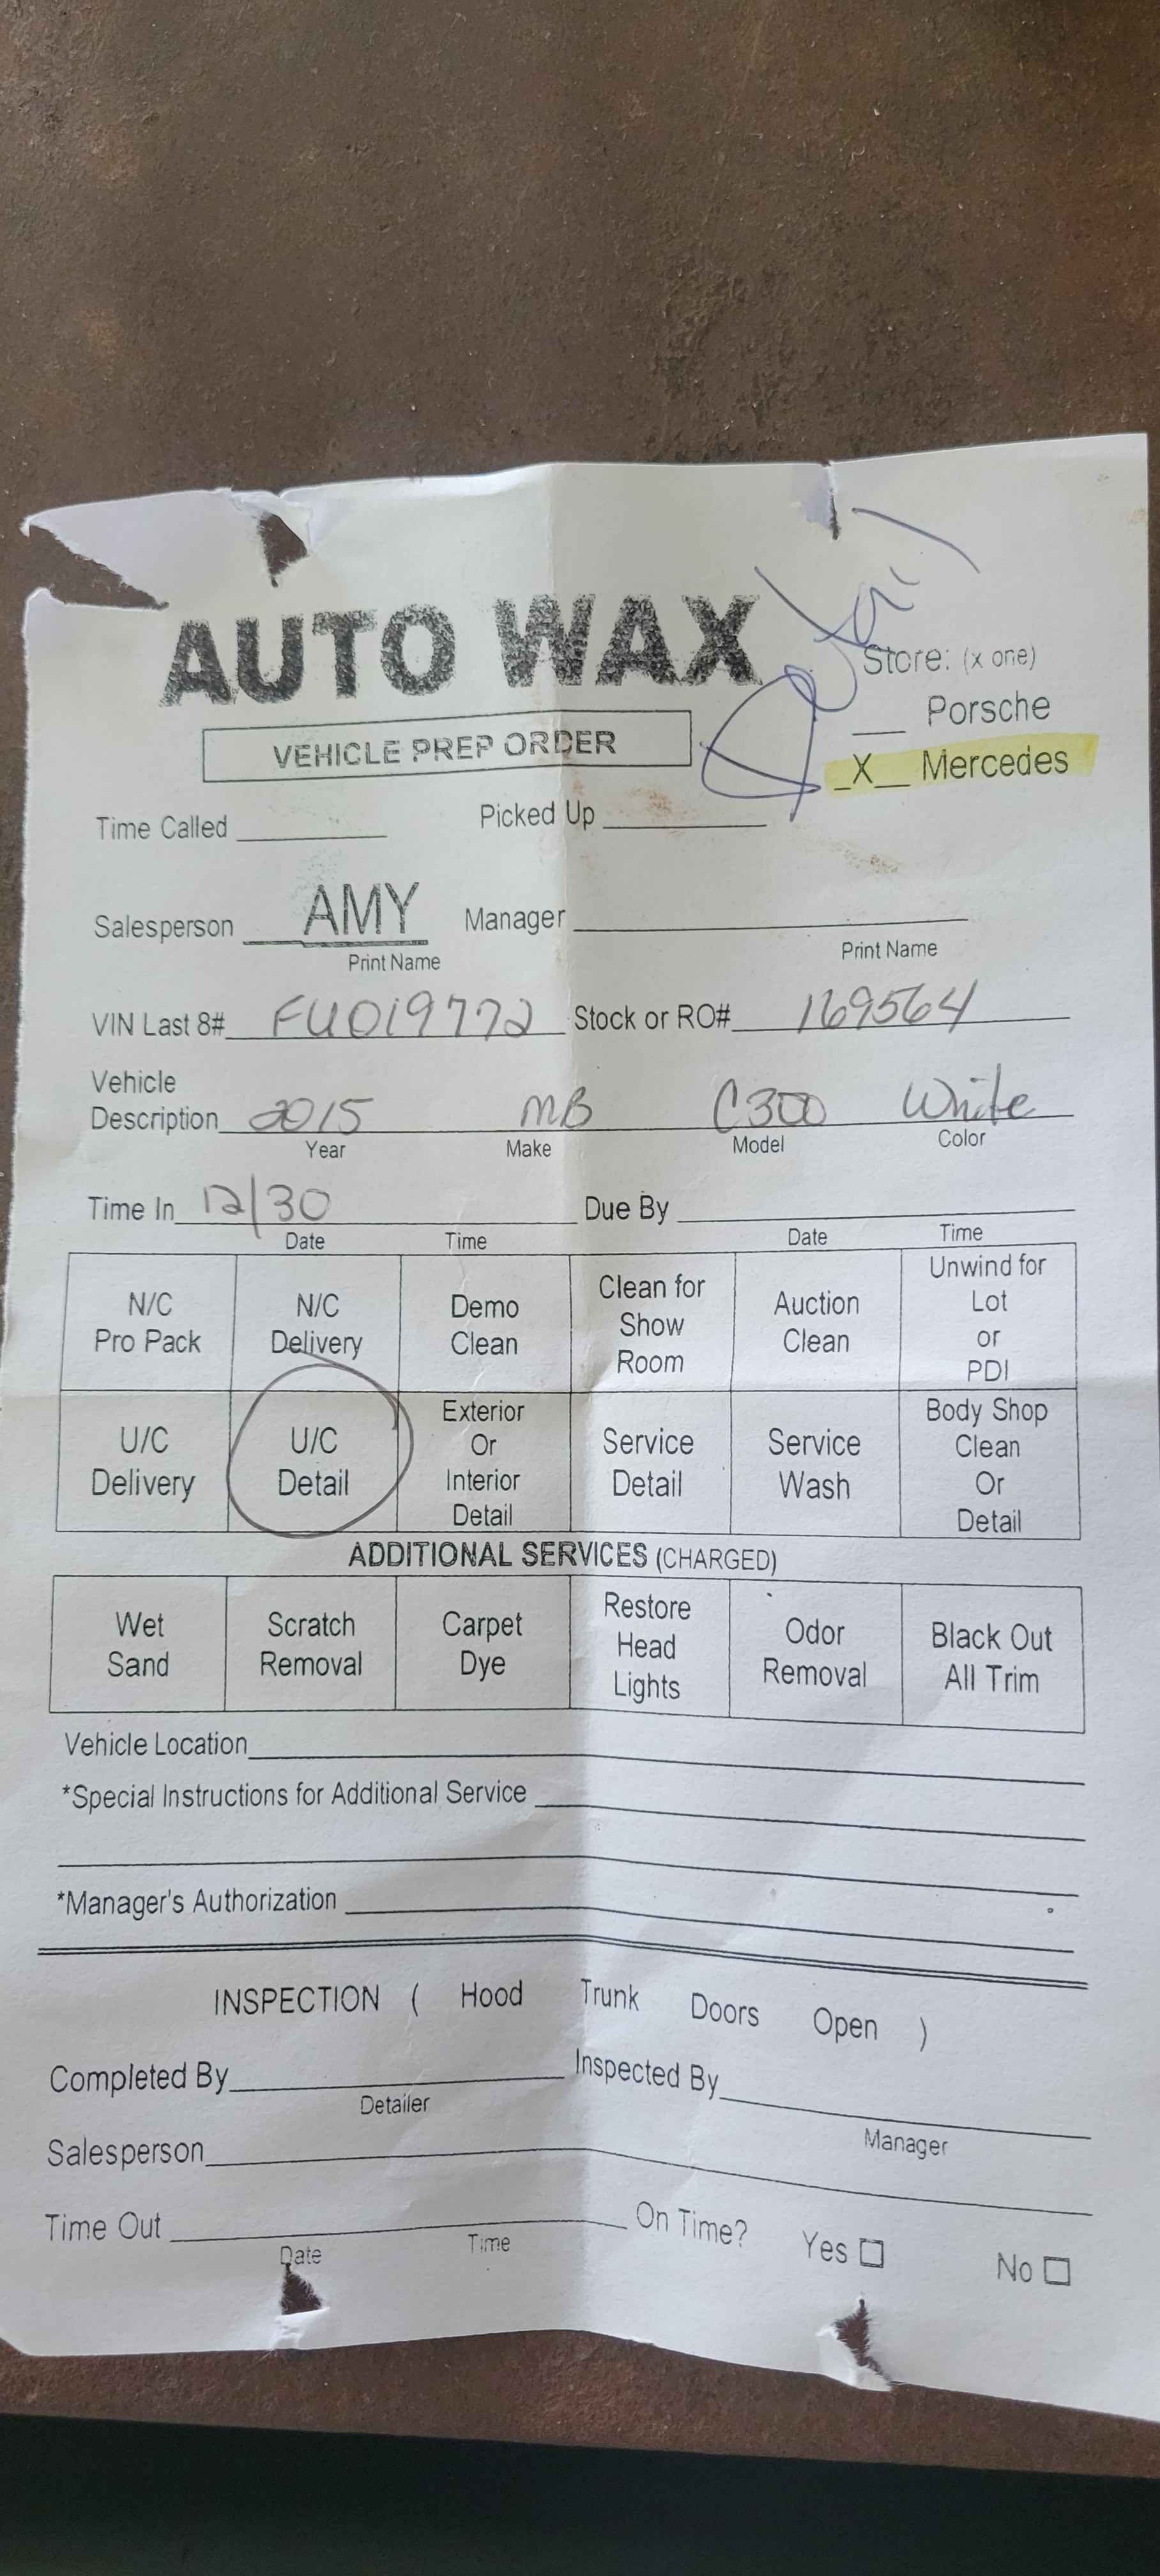 AUTO WAX
Detail
Store: (x one)
___ Porsche
VEHICLE PREP ORDER
_X__ Mercedes
Time Called ________ Picked Up ________
Salesperson AMY Manager ________
Print Name Print Name
VIN Last 8# FU019772 Stock or RO# 169564
Vehicle
Description 2015 MB C300 White
Year Make Model Color
Time In 12/30 Due By ________
Date Time Date Time
N/C Pro Pack N/C Delivery Demo Clean Clean for Show Room Auction Clean Unwind for Lot or PDI
U/C Delivery U/C Detail Exterior Or Interior Detail Service Detail Service Wash Body Shop Clean Or Detail
ADDITIONAL SERVICES (CHARGED)
Wet Sand Scratch Removal Carpet Dye Restore Head Lights Odor Removal Black Out All Trim
Vehicle Location ________
*Special Instructions for Additional Service ________
*Manager's Authorization ________
INSPECTION ( Hood Trunk Doors Open )
Completed By ________ Inspected By ________
Detailer Manager
Salesperson ________
Time Out ________ On Time? Yes ☐ No ☐
Date Time